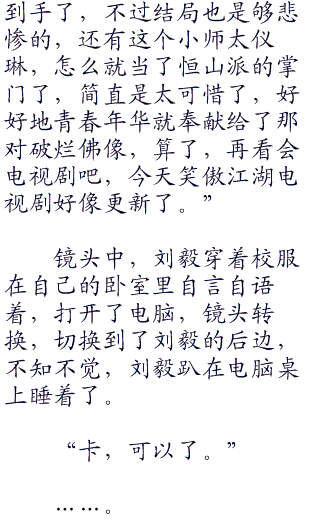 到手了，不过结局也是够悲
惨的，还有这个小师太仪
琳，怎么就当了恒山派的掌
门了，简直是太可惜了，好
好地青春年华就奉献给了那
对破烂佛像，算了，再看会
电视剧吧，今天笑傲江湖电
视剧好像更新了。”
镜头中，刘毅穿着校服
在自己的卧室里自言自语
着，打开了电脑，镜头转
换，切换到了刘毅的后边，
不知不觉，刘毅趴在电脑桌
上睡着了。
“卡，可以了。”
……。